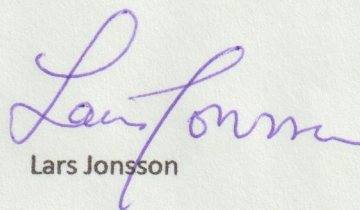 Lars Jonsson
Lars Jonsson